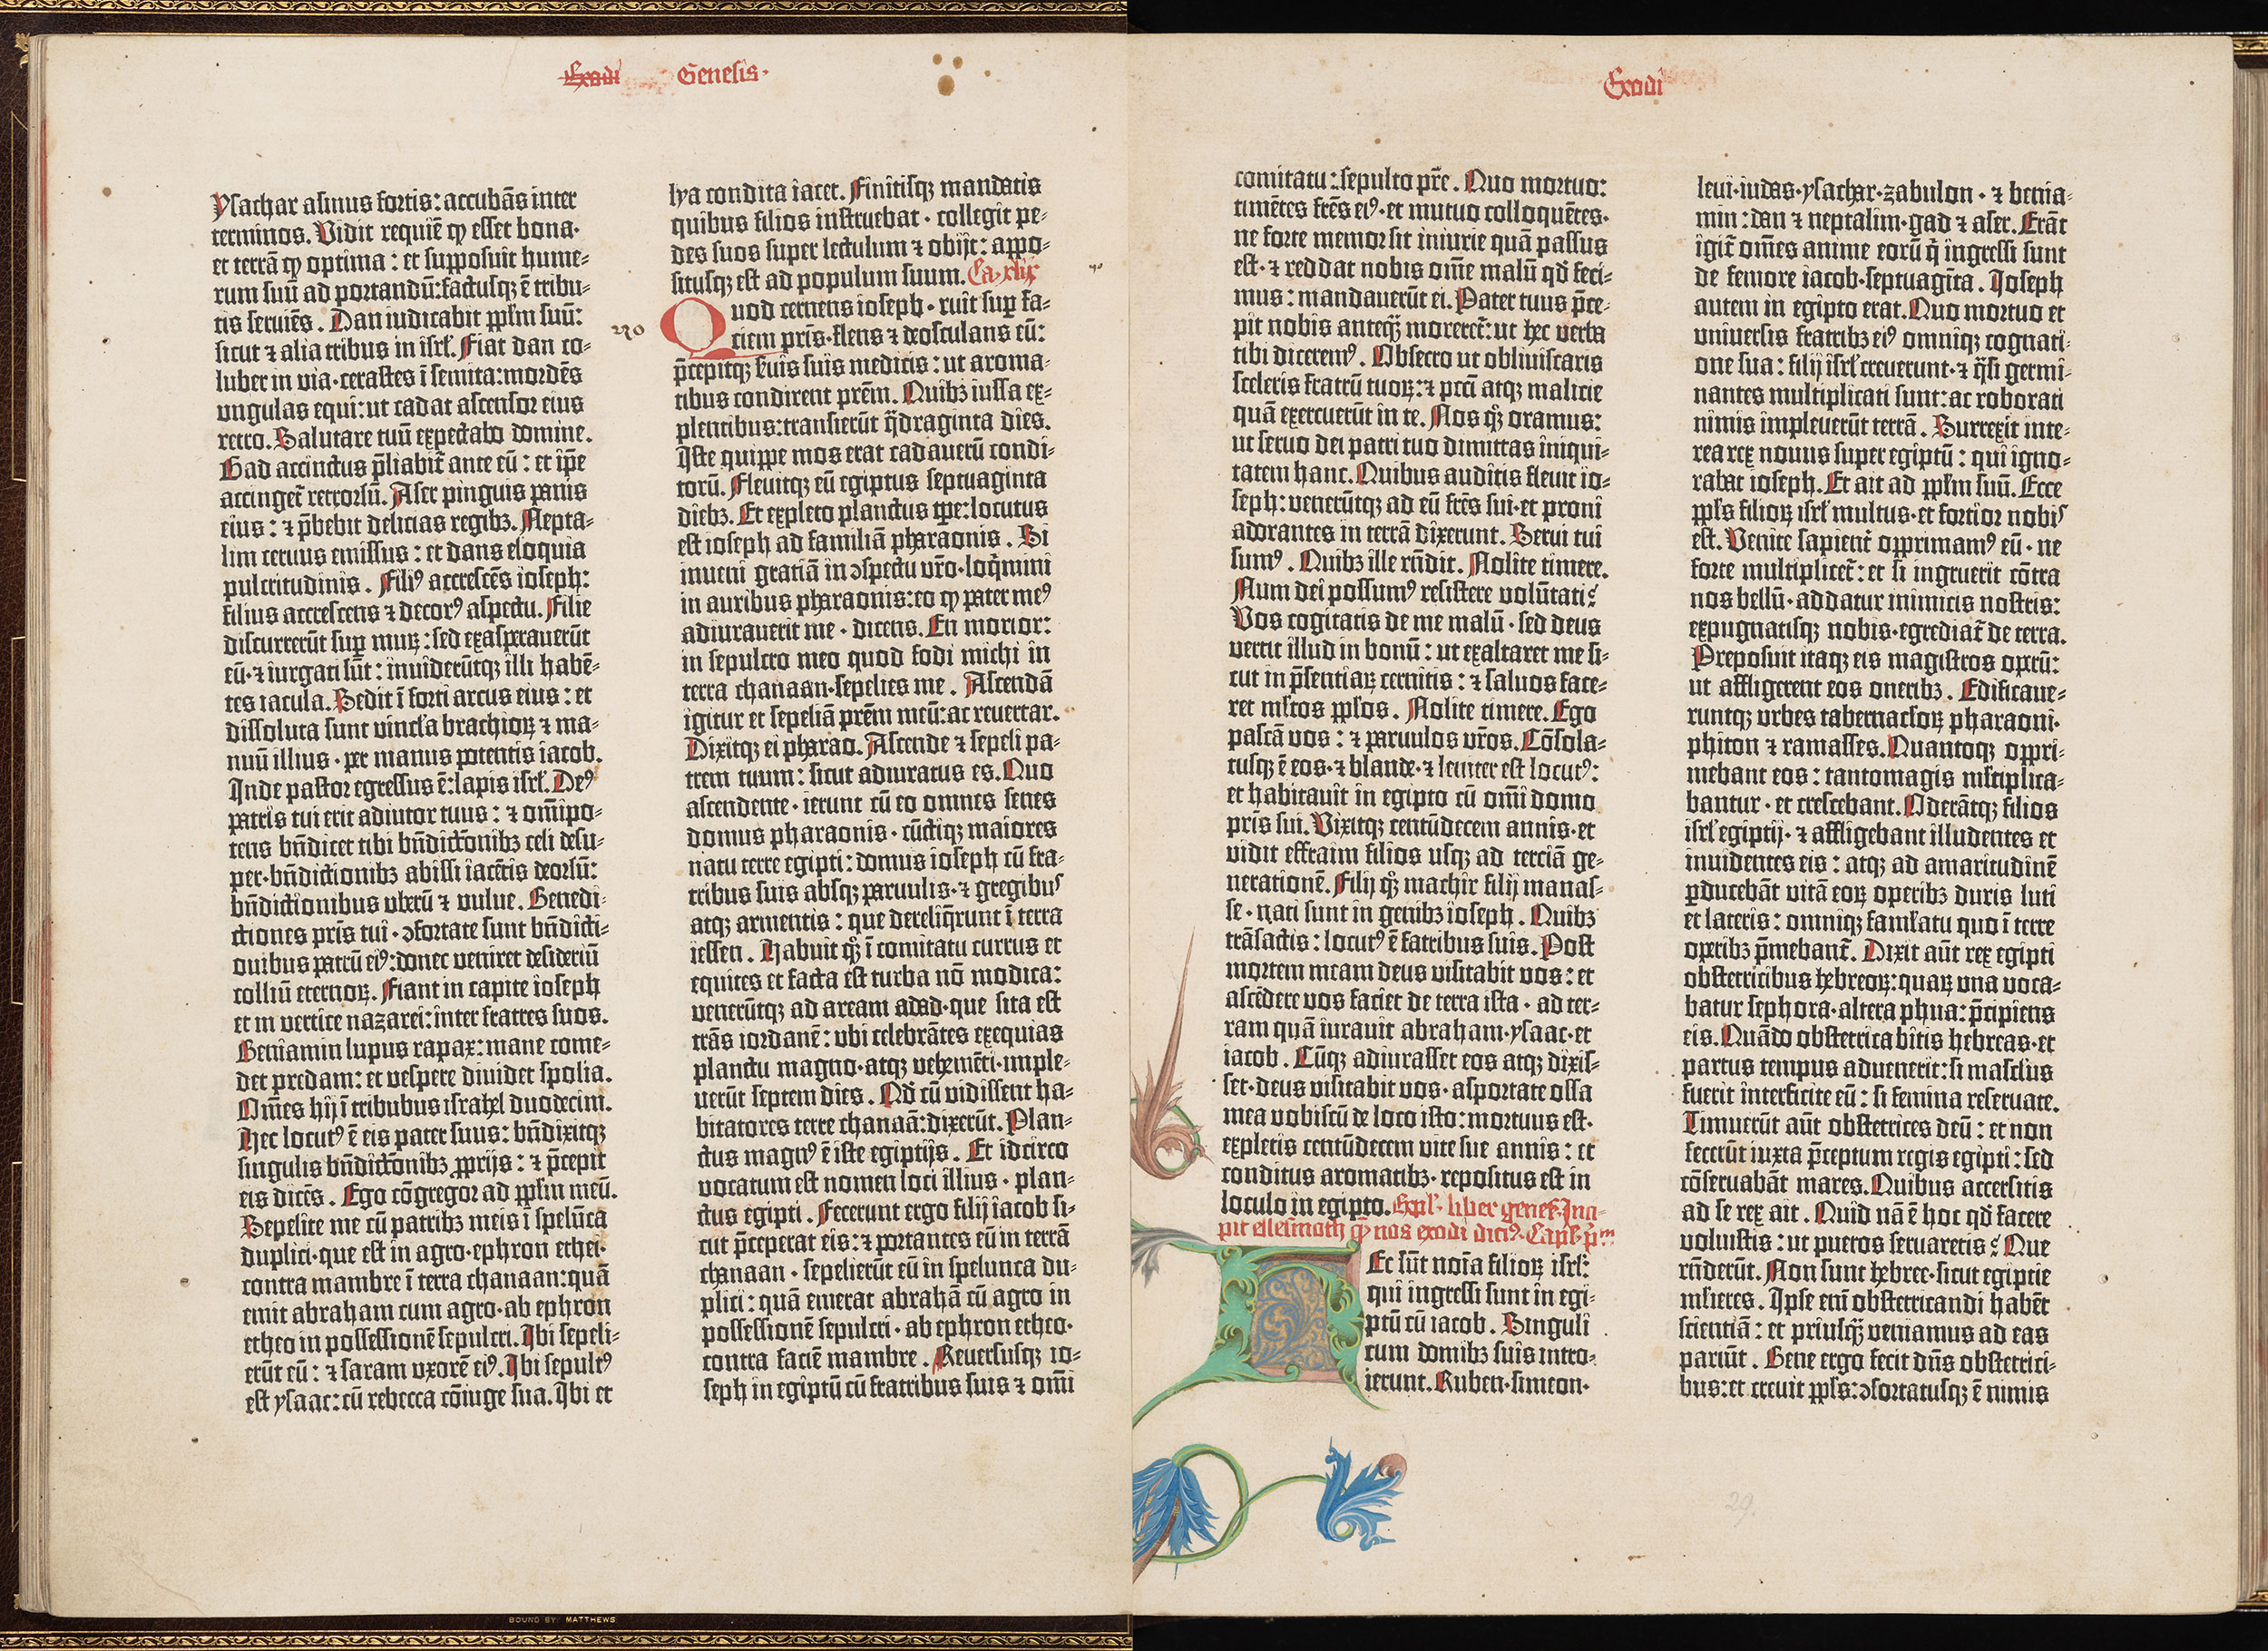 Exodi Genesis·
Ysachar asinus fortis: accubãs inter
terminos. Vidit requiē ꝙ esset bona·
et terrã ꝙ optima: et supposuit hume-
rum suũ ad portandũ: factusqꝫ ē tribu-
tis seruiēs. Dan iudicabit ppl̃m suũ:
sicut ⁊ alia tribus in isrl̃. Fiat dan co-
luber in via· cerastes ī semita: mordēs
ungulas equi: ut cadat ascensor eius
retro. Salutare tuũ expectabo domine.
Gad accinctus p̃liabit̃ ante eũ: et ip̃e
accinget̃ retrorsũ. Aser pinguis panis
eius: ⁊ p̃bebit delicias regibꝫ. Nepta-
lim ceruus emissus: et dans eloquia
pulcritudinis. Filiꝰ accrescēs ioseph:
filius accrescens ⁊ decorꝰ aspectu. Filie
discurrerũt suꝑ muꝝ: sed exasperauerũt
eũ· ⁊ iurgati sũt: inuiderũtqꝫ illi habē-
tes iacula. Sedit ī forti arcus eius: et
dissoluta sunt vincl̃a brachioꝝ ⁊ ma-
nuũ illius· per manus potentis iacob.
Inde pastor egressus ē: lapis isrl̃. Deꝰ
patris tui erit adiutor tuus: ⁊ om̃ipo-
tens bñdicet tibi bñdict̃onibꝫ celi desu-
per· bñdictionibꝫ abissi iacētis deorsũ:
bñdictionibus uberũ ⁊ vulue. Benedi-
ctiones pr̃is tui· ꝯfortate sunt bñdicti-
onibus patrũ eiꝰ: donec veniret desideriũ
colliũ eternoꝝ. Fiant in capite ioseph
et in vertice nazarei: inter fratres suos.
Beniamin lupus rapax: mane come-
det predam: et vespere diuidet spolia.
Om̃es hij ī tribubus israhel duodecim.
Hec locutꝰ ē eis pater suus: bñdixitqꝫ
singulis bñdict̃onibꝫ ꝓprijs: ⁊ p̃cepit
eis dicēs. Ego cõgregor ad ppl̃m meũ.
Sepelite me cũ patribꝫ meis ī spelũca
duplici· que est in agro· ephron ethei·
contra mambre ī terra chanaan: quã
emit abraham cum agro· ab ephron
etheo in possessionē sepulcri. Ibi sepeli-
erũt eũ: ⁊ saram vxorē eiꝰ. Ibi sepultꝰ
est ysaac: cũ rebecca cõiuge sua. Ibi et
lya condita iacet. Finitisqꝫ mandatis
quibus filios instruebat· collegit pe-
des suos super lectulum ⁊ obijt: appo-
situsqꝫ est ad populum suum. Ca. xlix
Quod cernens ioseph· ruit suꝑ fa-
ciem pr̃is· flens ⁊ deosculans eũ:
p̃cepitqꝫ ẜuis suis medicis: ut aroma-
tibus condirent prēm. Quibꝫ iussa ex-
plentibus: transierũt q̃draginta dies.
Iste quippe mos erat cadauerũ condi-
torũ. Fleuitqꝫ eũ egiptus septuaginta
diebꝫ. Et expleto planctus tp̃e: locutus
est ioseph ad familiã pharaonis. Si
inueni gratiã in ꝯspectu vr̃o· loq̃mini
in auribus pharaonis: eo ꝙ pater meꝰ
adiurauerit me· dicens. En morior:
in sepulcro meo quod fodi michi in
terra chanaan· sepelies me. Ascendã
igitur et sepeliã prēm meũ: ac reuertar.
Dixitqꝫ ei pharao. Ascende ⁊ sepeli pa-
trem tuum: sicut adiuratus es. Quo
ascendente· ierunt cũ eo omnes senes
domus pharaonis· cũctiqꝫ maiores
natu terre egipti: domus ioseph cũ fra-
tribus suis absqꝫ paruulis· ⁊ gregibus
atqꝫ armentis: que dereliq̃runt ī terra
iessen. Habuit qꝫ ī comitatu currus et
equites et facta est turba nõ modica:
venerũtqꝫ ad aream adad· que sita est
trãs iordanē: vbi celebrãtes exequias
planctu magno· atqꝫ vehemēti· imple-
verũt septem dies. Qd̃ cũ vidissent ha-
bitatores terre chanaã: dixerũt. Plan-
ctus magnꝰ ē iste egiptijs. Et idcirco
vocatum est nomen loci illius· plan-
ctus egipti. Fecerunt ergo filij iacob si-
cut p̃ceperat eis: ⁊ portantes eũ in terrã
chanaan· sepelierũt eũ in spelunca du-
plici: quã emerat abrahã cũ agro in
possessionē sepulcri· ab ephron etheo·
contra faciē mambre. Reuersusqꝫ io-
seph in egiptũ cũ fratribus suis ⁊ om̃i
Exodi
comitatu: sepulto pr̃e. Quo mortuo:
timētes frēs eiꝰ· et mutuo colloquētes·
ne forte memor sit iniurie quã passus
est· ⁊ reddat nobis om̃e malũ qd̃ feci-
mus: mandauerũt ei. Pater tuus p̃ce-
pit nobis anteqꝫ̃ moreret̃: ut hec verba
tibi diceremꝰ. Obsecro ut obliuiscaris
sceleris fratrũ tuoꝝ: ⁊ pccī atqꝫ malicie
quã exercuerũt in te. Nos qꝫ oramus:
ut seruo dei patri tuo dimittas iniqui-
tatem hanc. Quibus auditis fleuit io-
seph: venerũtqꝫ ad eũ frēs sui· et proni
adorantes in terrã dixerunt. Serui tui
sumꝰ. Quibꝫ ille rñdit. Nolite timere.
Num dei possumꝰ resistere volũtati?
Vos cogitatis de me malũ· sed deus
vertit illud in bonũ: ut exaltaret me si-
cut in p̃sentiaꝝ cernitis: ⁊ saluos face-
ret ml̃tos ppl̃os. Nolite timere. Ego
pascã vos: ⁊ paruulos vr̃os. Cõsola-
tusqꝫ ē eos· ⁊ blande· ⁊ leniter est locutꝰ:
et habitauit in egipto cũ om̃i domo
pr̃is sui. Vixitqꝫ centũdecem annis· et
vidit effraim filios usqꝫ ad terciã ge-
nerationē. Filij qꝫ machir filij manas-
se· nati sunt in genibꝫ ioseph. Quibꝫ
trãsactis: locutꝰ ē fatribus suis. Post
mortem meam deus visitabit vos: et
ascēdere vos faciet de terra ista· ad ter-
ram quã iurauit abraham· ysaac· et
iacob. Cũqꝫ adiurasset eos atqꝫ dixis-
set· deus visitabit vos· asportate ossa
mea vobiscũ de loco isto: mortuus est·
expletis centũdecem vite sue annis: et
conditus aromatibꝫ· repositus est in
loculo in egipto. Expl̃· liber geneẜ. Inci-
pit ellesmoth q̃ nos exodi diciꝰ. Capl̃· p̃m
Et sũt noĩa filioꝝ isrl̃:
qui ingressi sunt in egi-
ptũ cũ iacob. Singuli
cum domibꝫ suis intro-
ierunt. Ruben· simeon·
leui· iudas· ysachar· zabulon· ⁊ benia-
min: dan ⁊ neptalim· gad ⁊ aser. Erãt
igit̃ om̃es anime eorũ q̃ ingressi sunt
de femore iacob· septuagīta. Ioseph
autem in egipto erat. Quo mortuo et
vniuersis fratribꝫ eiꝰ omniqꝫ cognati-
one sua: filij isrl̃ creuerunt· ⁊ q̃si germi-
nantes multiplicati sunt: ac roborati
nimis impleuerũt terrã. Surrexit inte-
rea rex nouus super egiptũ: qui igno-
rabat ioseph. Et ait ad ppl̃m suũ. Ecce
ppl̃s filioꝝ isrl̃ multus· et fortior nobis
est. Venite sapient̃ opprimamꝰ eũ· ne
forte multiplicet̃: et si ingruerit cõtra
nos bellũ· addatur inimicis nostris:
expugnatisqꝫ nobis· egrediat̃ de terra.
Preposuit itaqꝫ eis magistros operũ:
ut affligerent eos oneribꝫ. Edificaue-
runtqꝫ vrbes tabernacl̃oꝝ pharaoni·
phiton ⁊ ramasses. Quantoqꝫ oppri-
mebant eos: tantomagis ml̃tiplica-
bantur· et crescebant. Oderãtqꝫ filios
isrl̃ egiptij· ⁊ affligebant illudentes et
inuidentes eis: atqꝫ ad amaritudinē
ꝑducebãt vitã eoꝝ operibꝫ duris luti
et lateris: omniqꝫ faml̃atu quo ī terre
operibꝫ p̃mebant̃. Dixit aũt rex egipti
obstetricibus hebreoꝝ: quaꝝ vna voca-
batur sephora· altera phua: p̃cipiens
eis. Quãdo obstetricabitis hebreas· et
partus tempus aduenerit: si mascl̃us
fuerit interficite eũ: si femina reseruate.
Timuerũt aũt obstetrices deũ: et non
fecerũt iuxta p̃ceptum regis egipti: sed
cõseruabãt mares. Quibus accersitis
ad se rex ait. Quid nã ē hoc qd̃ facere
voluistis: ut pueros seruaretis? Que
rñderũt. Non sunt hebree· sicut egiptie
ml̃ieres. Ipse eni obstetricandi habēt
scientiã: et priusqꝫ̃ veniamus ad eas
pariũt. Bene ergo fecit dñs obstetrici-
bus: et creuit ppl̃s: ꝯfortatusqꝫ ē nimis
29.
BOUND BY MATTHEWS